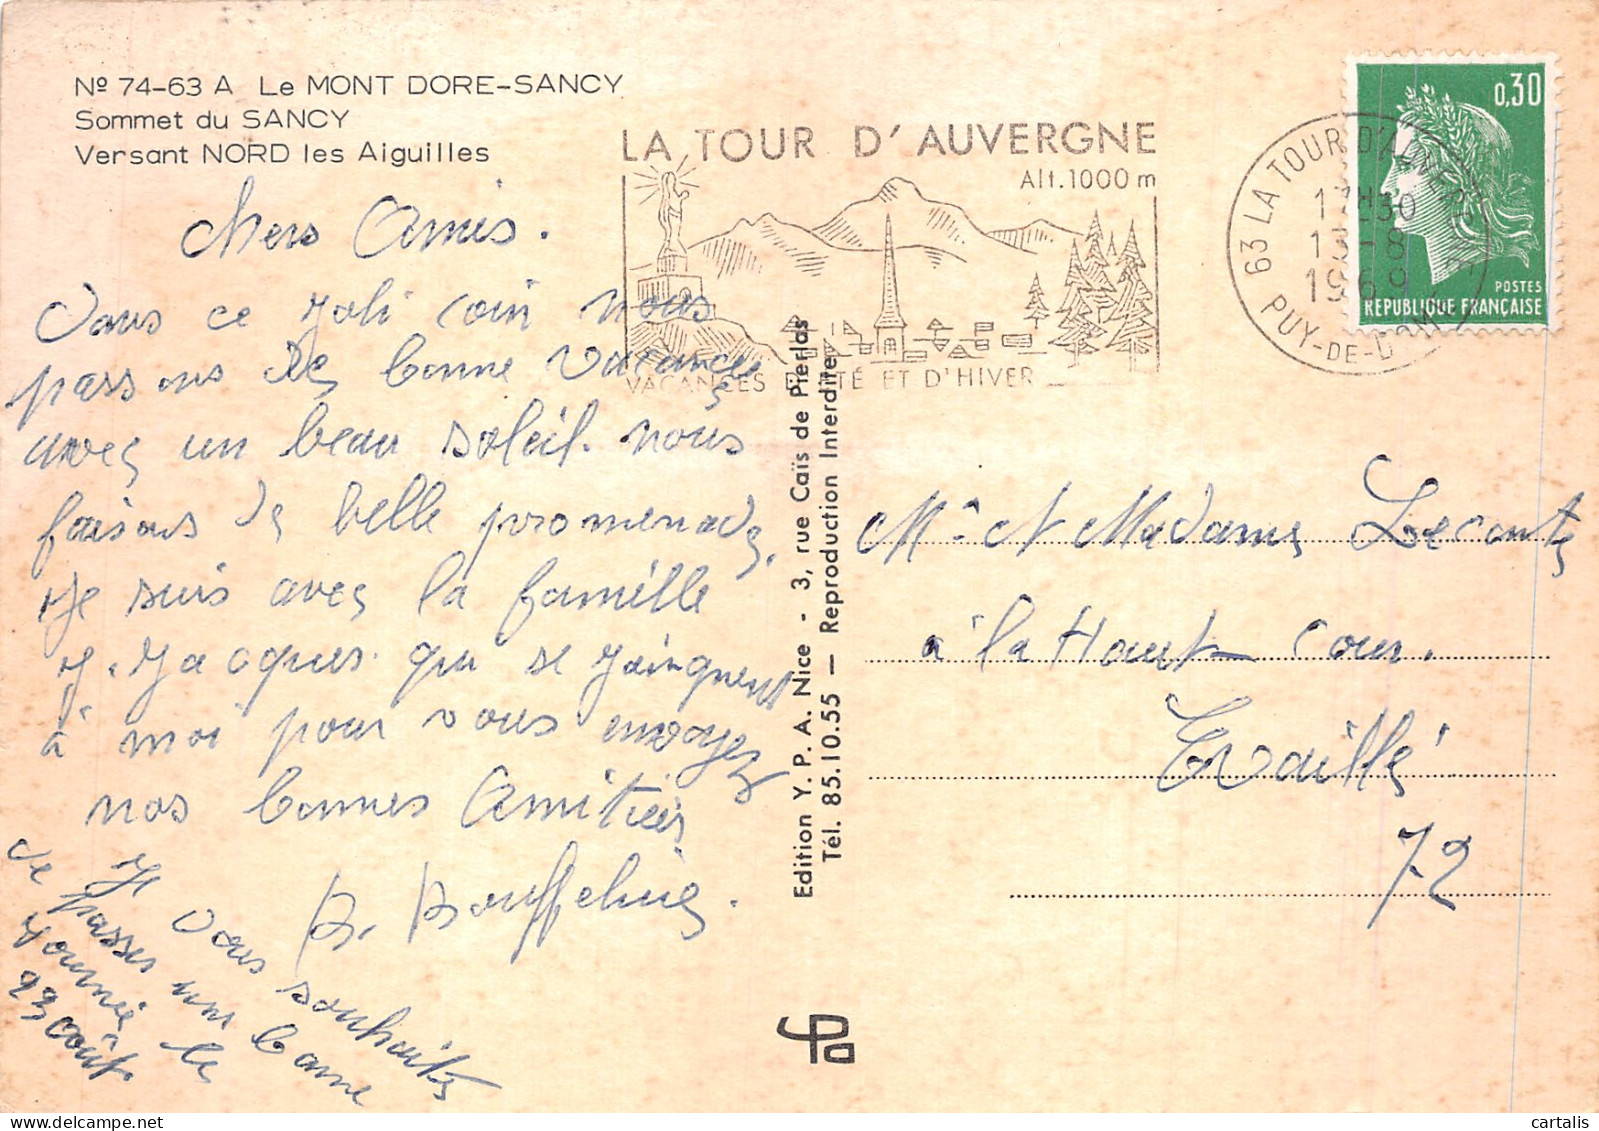 Nº 74-63 A Le MONT DORE-SANCY
Sommet du SANCY
Versant NORD les Aiguilles
LA TOUR D'AUVERGNE
Alt. 1000 m
VACANCES D'ÉTÉ ET D'HIVER
63 LA TOUR D'AUVERGNE
17H30
13-8
1969
PUY-DE-DOME
0,30
POSTES
REPUBLIQUE FRANÇAISE
Chers Amis.
Dans ce Joli coin nous
passons de bonne vacances
avec un beau soleil. nous
faisons de belle promenade,
Je suis avec la famille
J. Jacques qui se joingnent
à moi pour vous envoyez
nos bonnes Amitiés
Je vous souhaite
de passer une bonne
journée le
23 août.
Edition Y. P. A. Nice - 3, rue Caïs de Pierlas
Tél. 85.10.55 — Reproduction Interdite
Mr et Madame Leconte
à la Haute Cour.
Tvaillé
72
cartalis - delcampe.net